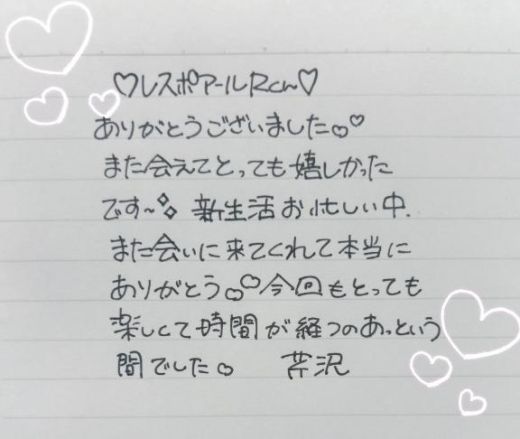 ♡レスポアールRcん♡
ありがとうございました♡♡
また会えてとっても嬉しかった
です〜 新生活お忙しい中.
また会いに来てくれて本当に
ありがとう♡♡今回もとっても
楽しくて時間が経つのあっという
間でした♡ 芹沢